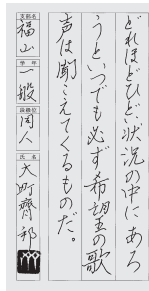 どれほどひどい状況の中にあろ
うと、いつでも必ず希望の歌
声は聞こえてくるものだ。
支部名
福山
学年
一般
段級位
同人
氏名
大町齊邦